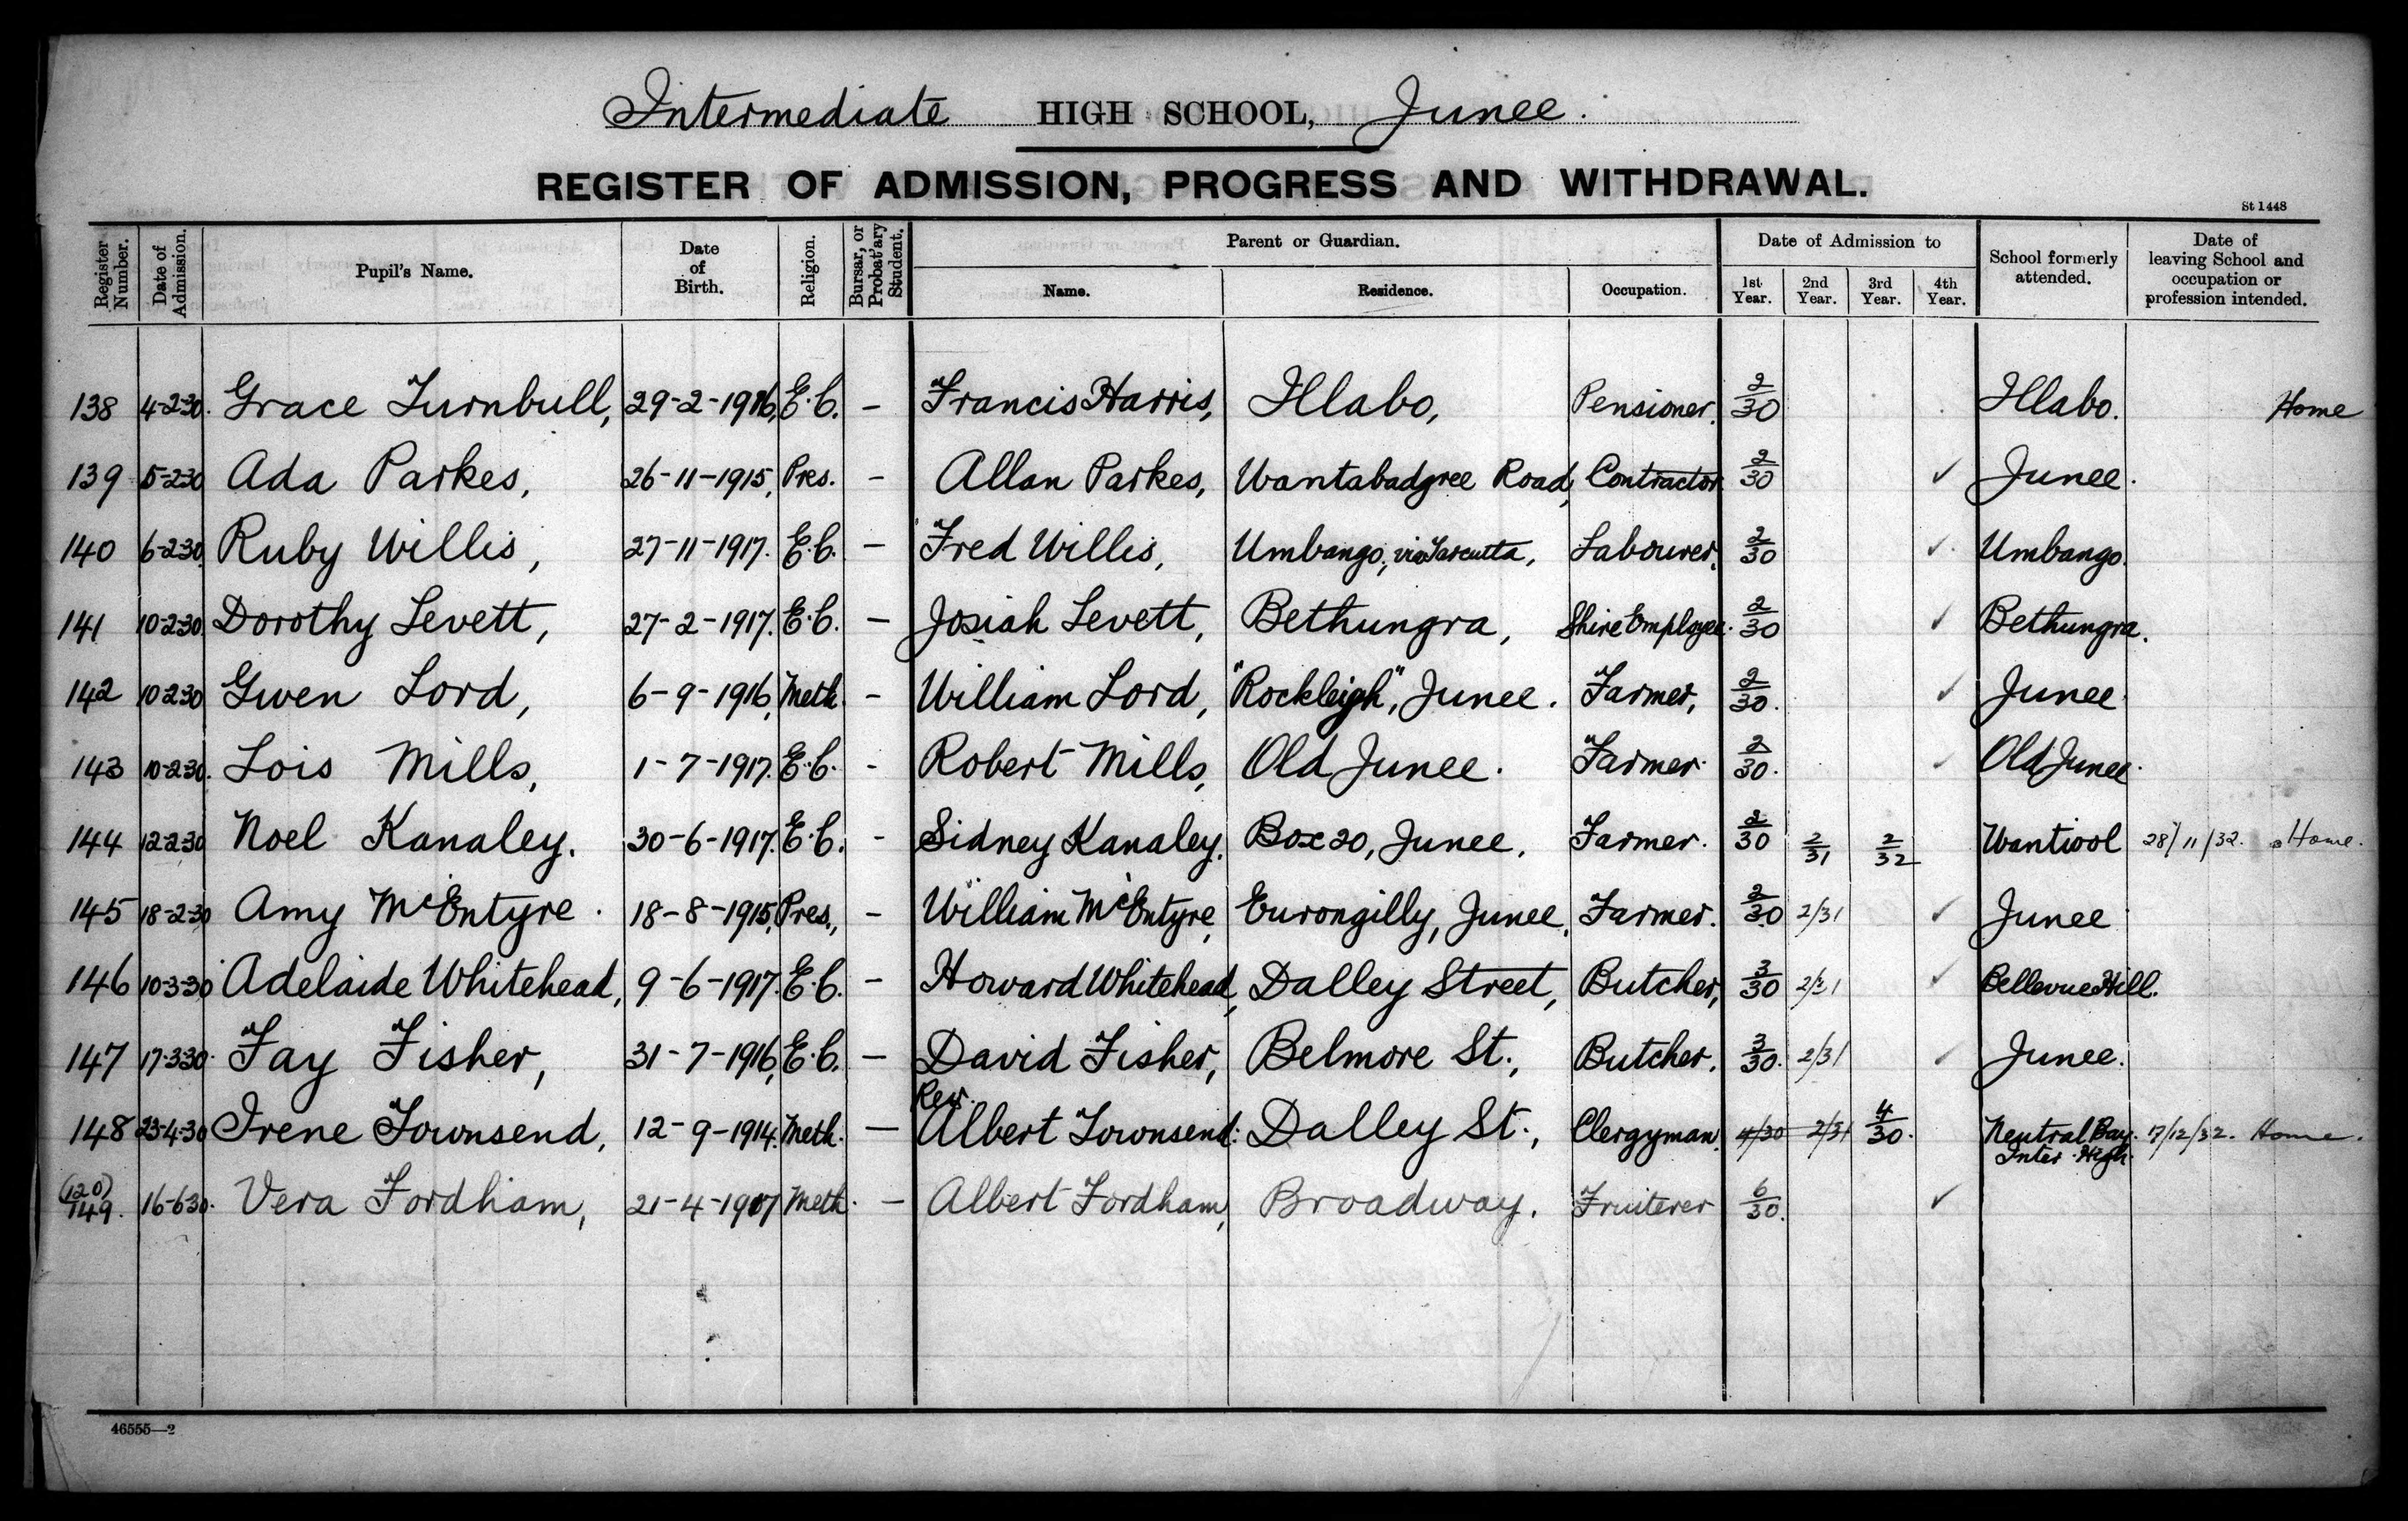 Intermediate HIGH SCHOOL, Junee.
REGISTER OF ADMISSION, PROGRESS AND WITHDRAWAL.
St 1448
Register Number. Date of Admission. Pupil's Name. Date of Birth. Religion. Bursar, or Probat'ary Student. Parent or Guardian. Date of Admission to School formerly attended. Date of leaving School and occupation or profession intended.
Name. Residence. Occupation. 1st Year. 2nd Year. 3rd Year. 4th Year.
138 4-2-30. Grace Turnbull, 29-2-1916, E.C. - Francis Harris, Illabo, Pensioner. 2/30 Illabo. Home
139 5-2-30 Ada Parkes, 26-11-1915, Pres. - Allan Parkes, Wantabadgree Road, Contractor 2/30 ✓ Junee.
140 6-2-30 Ruby Willis, 27-11-1917. E.C. - Fred Willis, Umbango, via Tarcutta, Labourer. 2/30 ✓ Umbango
141 10-2-30 Dorothy Levett, 27-2-1917. E.C. - Josiah Levett, Bethungra, Shire Employee. 2/30 ✓ Bethungra.
142 10-2-30 Gwen Lord, 6-9-1916, Meth. - William Lord, "Rockleigh", Junee. Farmer, 2/30. ✓ Junee
143 10-2-30. Lois Mills, 1-7-1917. E.C. - Robert Mills, Old Junee. Farmer. 2/30. ✓ Old Junee.
144 12-2-30 Noel Kanaley. 30-6-1917. E.C. - Sidney Kanaley. Box 20, Junee. Farmer. 2/30 2/31 2/32 Wantiool 28/11/32. Home.
145 18-2-30 Amy McEntyre. 18-8-1915, Pres., - William McEntyre, Eurongilly, Junee, Farmer. 2/30 2/31 ✓ Junee
146 10-3-30 Adelaide Whitehead, 9-6-1917. E.C. - Howard Whitehead, Dalley Street, Butcher, 3/30 2/31 ✓ Bellevue Hill.
147 17-3-30. Fay Fisher, 31-7-1916, E.C. - David Fisher, Belmore St., Butcher. 3/30. 2/31 ✓ Junee.
148 23-4-30 Irene Townsend, 12-9-1914. Meth. - Rev. Albert Townsend. Dalley St., Clergyman. 4/30 2/31 4/30. Neutral Bay Inter. High. 17/12/32. Home.
(120) 149. 16-6-30. Vera Fordham, 21-4-1917 Meth. - Albert Fordham, Broadway. Fruiterer 6/30. ✓
46555—2